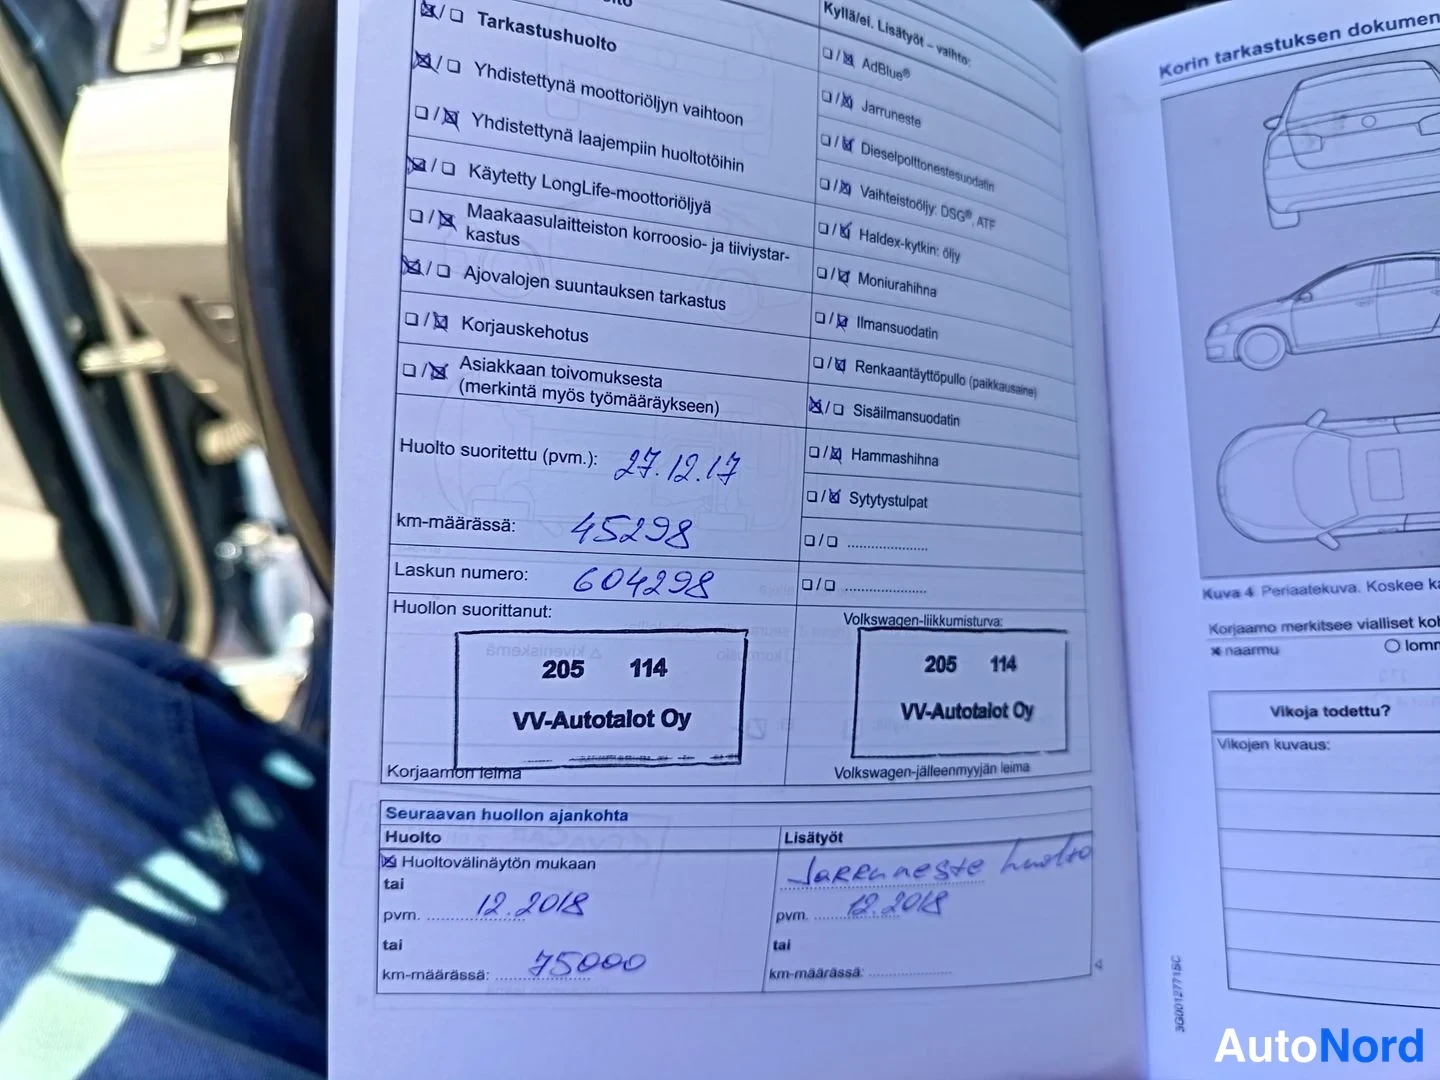 Kyllä/ei. Lisätyöt – vaihto:
Tarkastushuolto
AdBlue®
Yhdistettynä moottoriöljyn vaihtoon
Jarruneste
Yhdistettynä laajempiin huoltotöihin
Dieselpolttonestesuodatin
Käytetty LongLife-moottoriöljyä
Vaihteistoöljy: DSG®, ATF
Maakaasulaitteiston korroosio- ja tiiviystar-
kastus
Haldex-kytkin: öljy
Ajovalojen suuntauksen tarkastus
Moniurahihna
Korjauskehotus
Ilmansuodatin
Asiakkaan toivomuksesta
(merkintä myös työmääräykseen)
Renkaantäyttöpullo (paikkausaine)
Sisäilmansuodatin
Huolto suoritettu (pvm.): 27.12.17
Hammashihna
Sytytystulpat
km-määrässä: 45298
Laskun numero: 604298
Huollon suorittanut:
Volkswagen-liikkumisturva:
205 114
VV-Autotalot Oy
205 114
VV-Autotalot Oy
Korjaamon leima
Volkswagen-jälleenmyyjän leima
Seuraavan huollon ajankohta
Huolto
Lisätyöt
Huoltovälinäytön mukaan
Jarruneste huolto
tai
pvm. 12.2018
pvm. 12.2018
tai
tai
km-määrässä: 75000
km-määrässä:
Korin tarkastuksen dokumen
Kuva 4 Periaatekuva. Koskee ka
Korjaamo merkitsee vialliset koh
x naarmu
O lomm
Vikoja todettu?
Vikojen kuvaus:
3G0012771BC
AutoNord